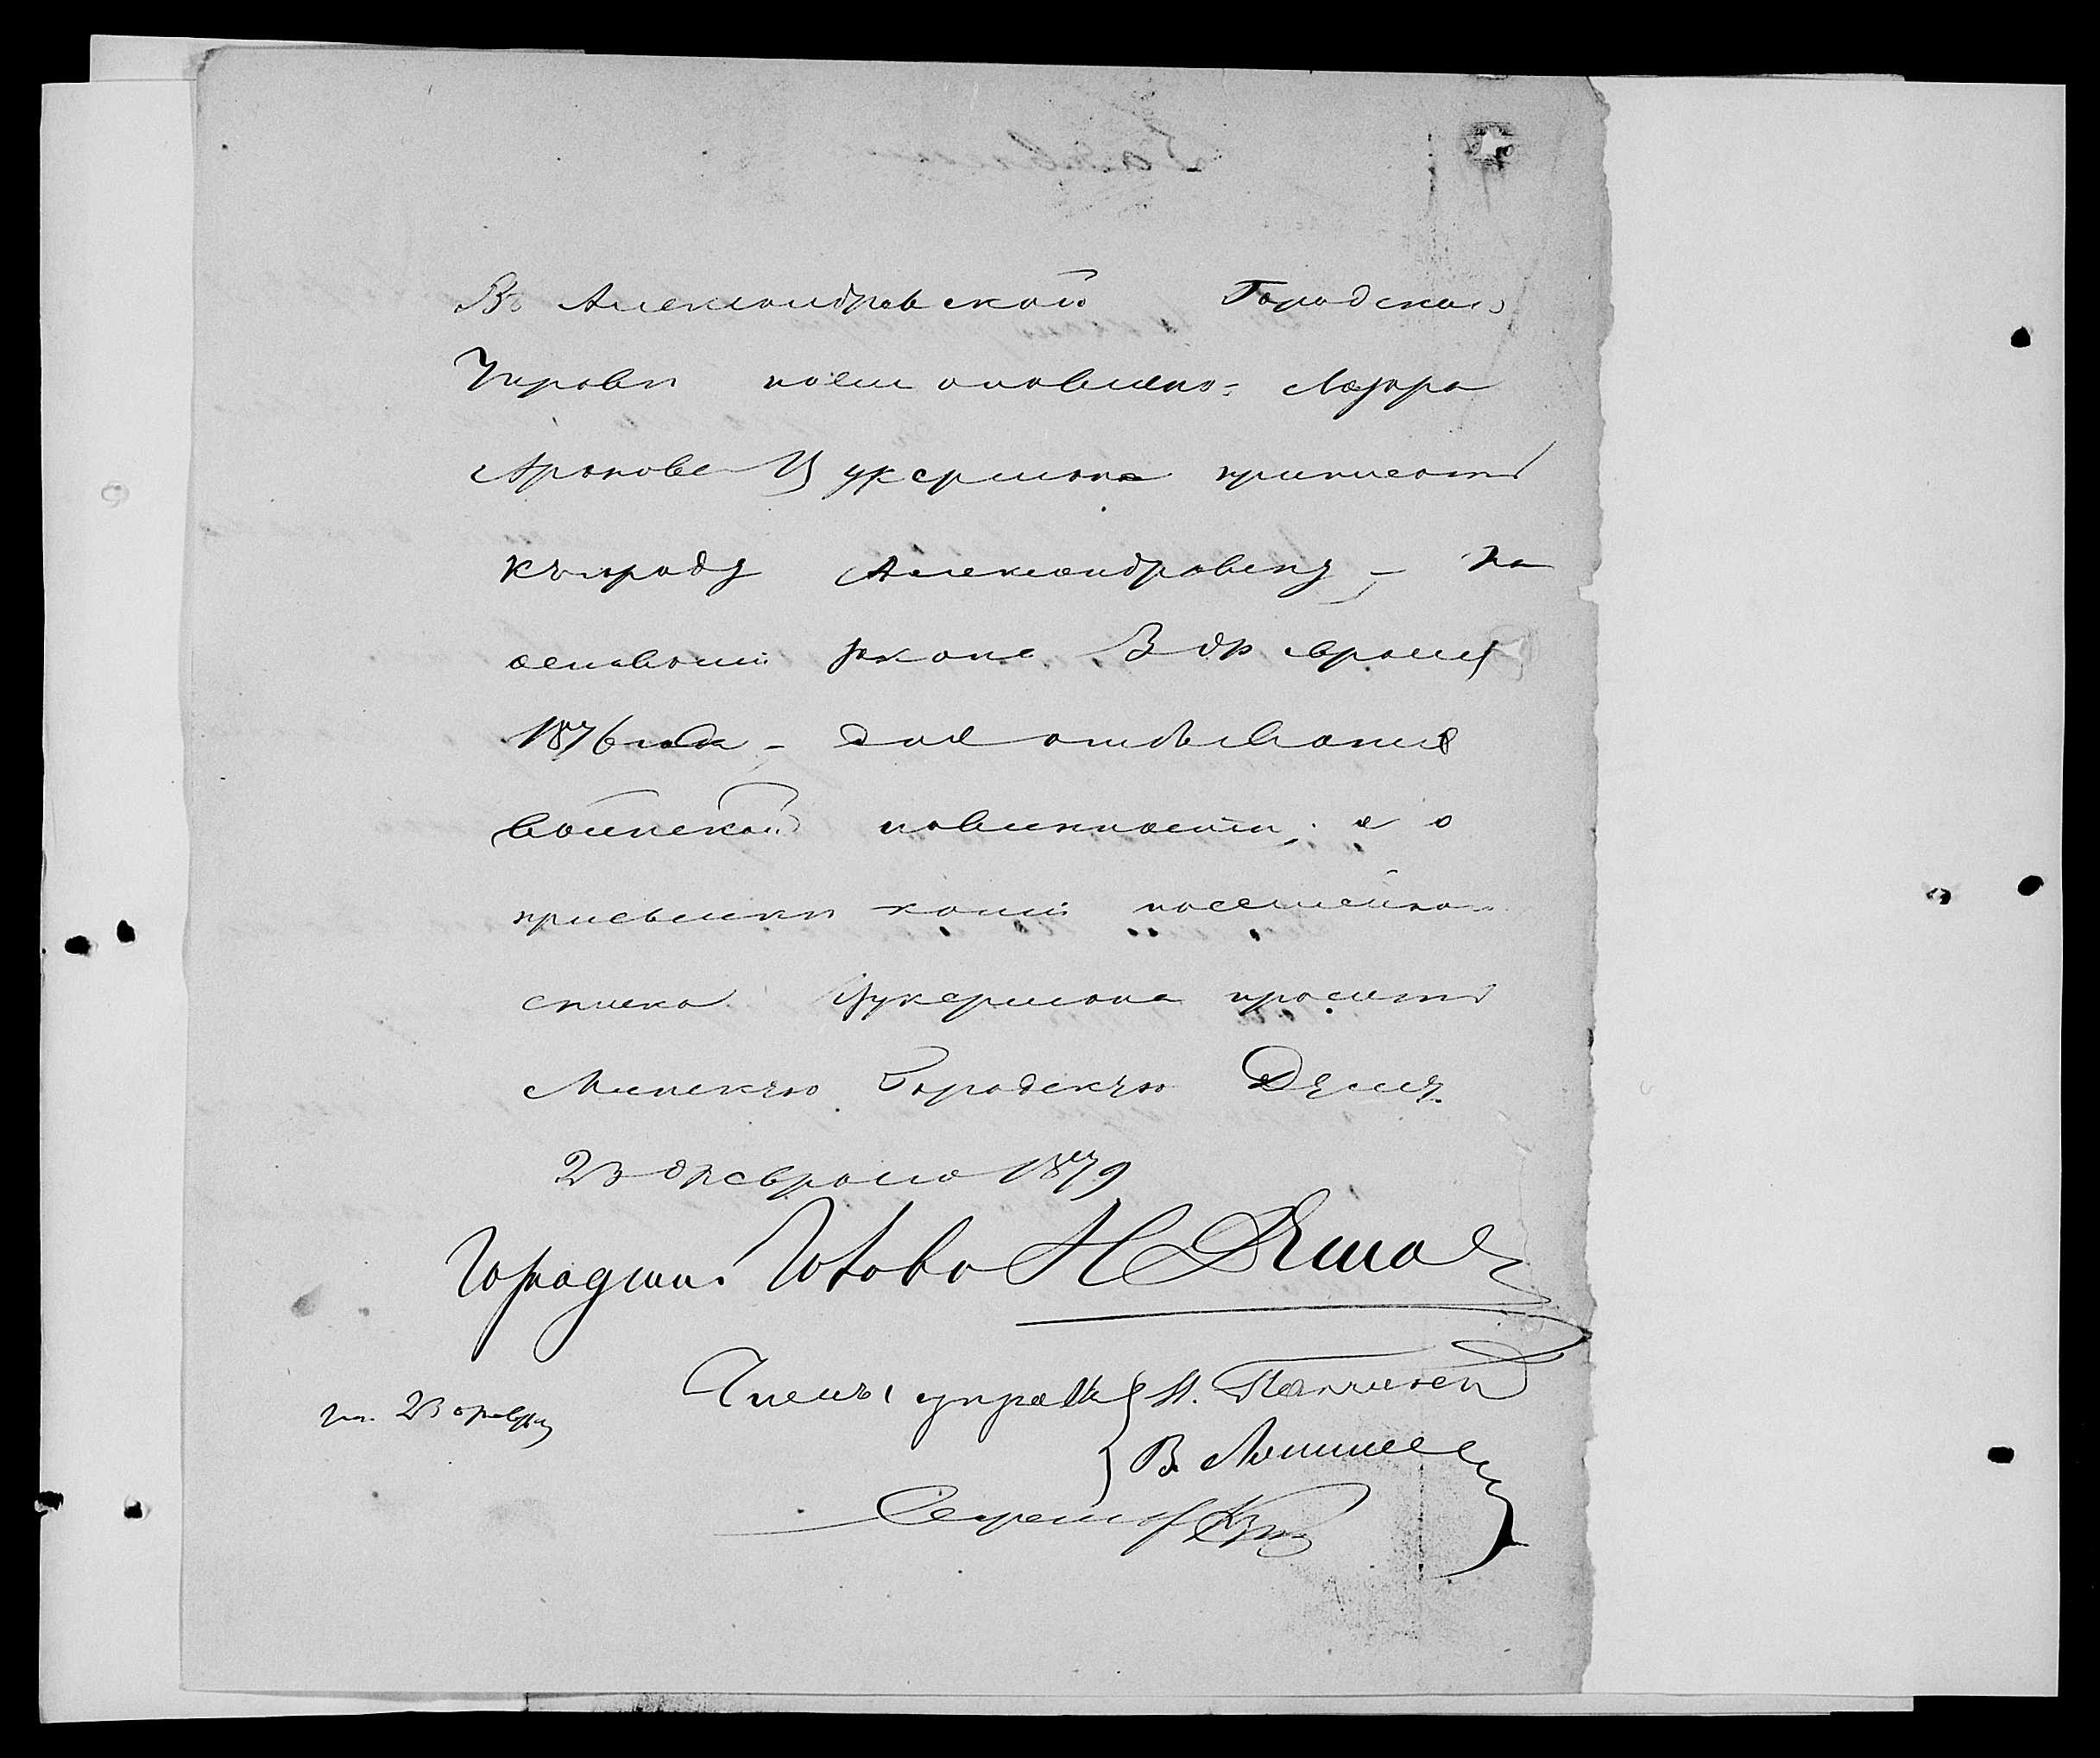 Въ Александровской Городской
Управѣ постановлено: Лазаря
Аронова Цукермана приписать
къ городу Александровску, на
основаніи закона 3 февраля
1876 года, для отбыванія
воинской повинности; а о
присылки копіи посемейнаго
списка Цукермана просить
Минскую Городскую Думу.
23 февраля 1879
Городской Голова Н
Члены управы
В.
Секретарь
23 февра